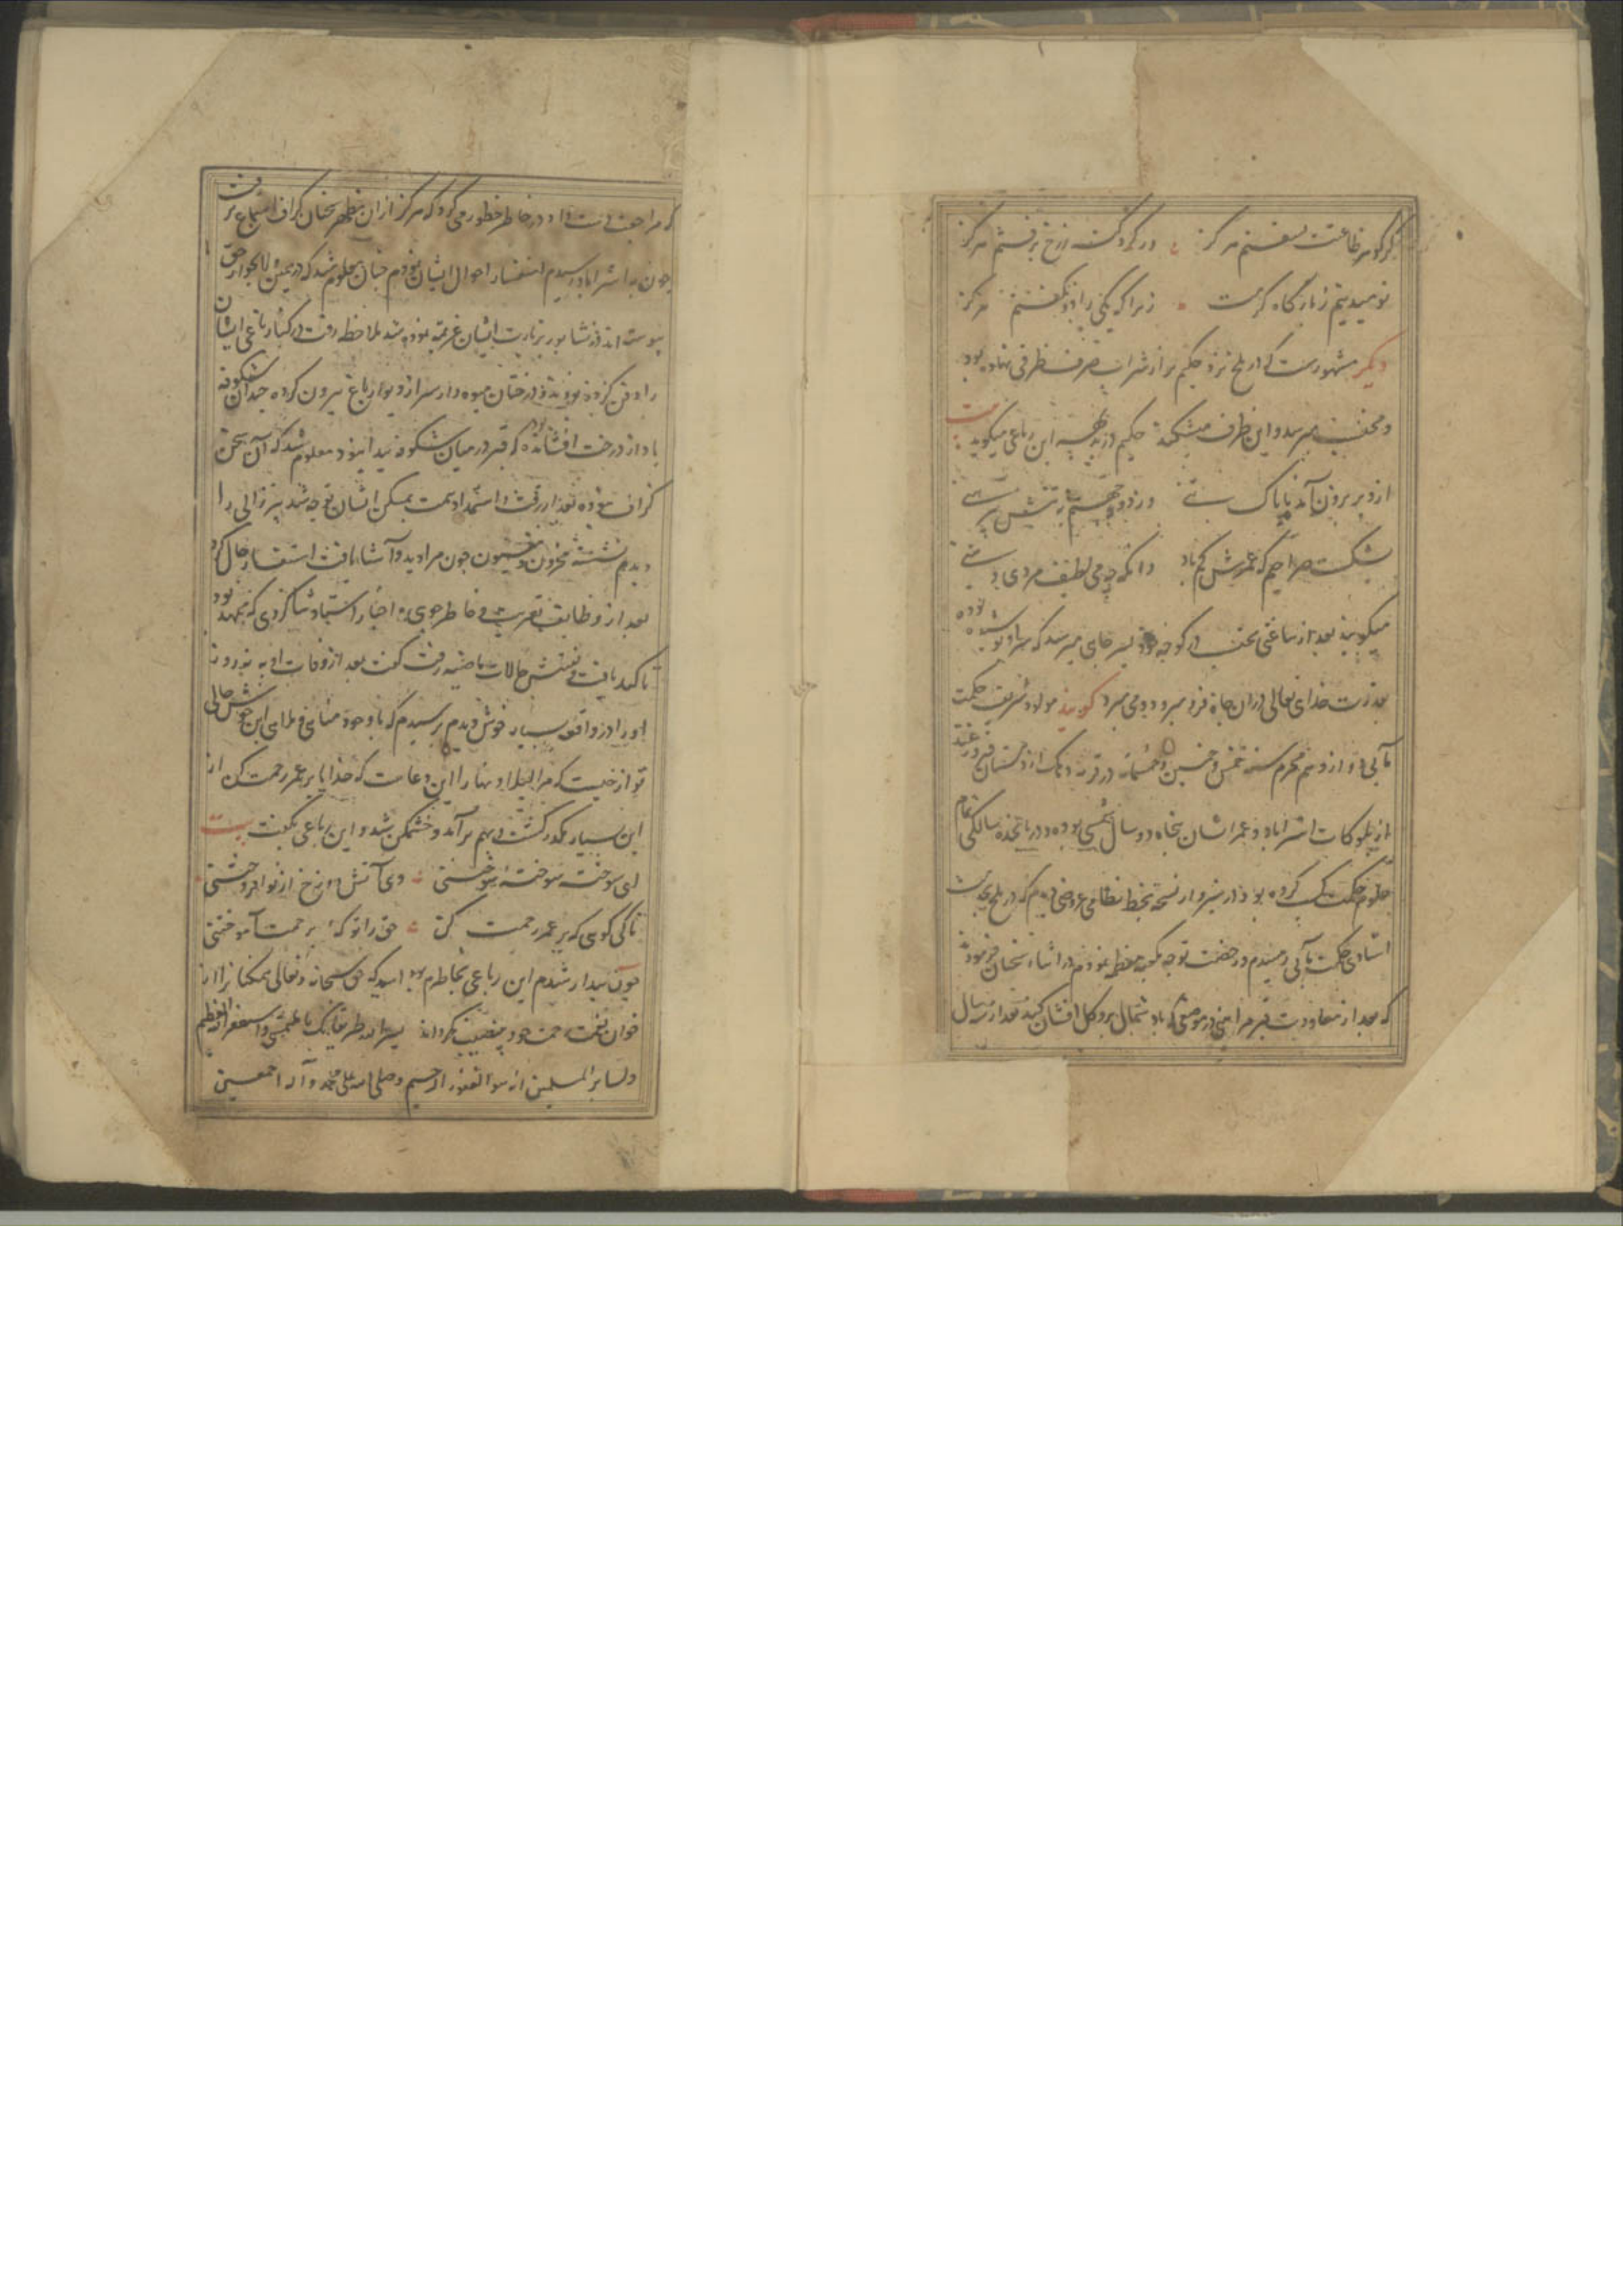 گر گوهر طاعتت نسفتم هرگز ور گرد گنه ز رخ نرفتم هرگز
نومید نیم ز بارگاه کرمت زیرا که یکی را دو نگفتم هرگز
دیگر مشهورست که در بلخ نزد حکیم پر از شراب صرف ظرفی نهاده بود
و محتسب میرسد و این ظرف میشکند حکیم در بدیهه این رباعی میگوید
از در برون آمد ناپاک
بشکست صراحیم که عمرش کم باد وانگه چه می لطیف مردی و منی
میگویند بعد از ساعتی محتسب در کوچه بسر چاهی میرسد که سر او پوشیده بوده
بقدرت خدای تعالی در آن چاه فرو میرود و می میرد گویند مولد شریف حکمت
مآبی دوازدهم محرم سنه خمس و خمسین و خمسمائه در قریه دهک از
از بلوکات استراباد و عمر ایشان پنجاه و دو سال شمسی بوده و در پانزده سالگی تمام
علوم حکمت کسب کرده بود در سبزوار نسخه بخط نظامی عروضی دیدم که در بلخ بخدمت
استادی حکمت مآبی رسیدم در حضت توجه بمکه معظمه نمودم در اثناء سخنان فرمودند
که بعد از معاودت قبر مرا بینی در موضعی که باد شمال برو گل افشان کند بعد از سه سال
که مراجعت دست داد در خاطر خطور می کرد که هرگز از آن مظهر سخنان گزاف استماع نرفت
چون به استراباد رسیدم استفسار احوال ایشان نمودم چنان معلوم شد که در همین ولا بجوار حق
پیوسته اند در نشابور بزیارت ایشان عزیمت نموده شد ملاحظه رفت در کنار باغی ایشان
را دفن کرده بودند و درختان میوه دار سر از دیوار باغ بیرون کرده چندان شکوفه
باد از درخت افشانده بود که قبر در میان شکوفه پیدا نبود معلوم شد که آن سخن
گزاف نبوده بعد از رقت و استمداد همت بمسکن ایشان توجه شد پیر زالی را
دیدم نشسته محزون و چون مرا دید و آشنا یافت استفسار حال کرد
بعد از وظایف تعزیت و خاطر جویی و اخبار استاد شاگردی که ممهد بود
تاکید یافت و تفتیش حالات ماضیه رفت گفت بعد از وفات او به نه روز
او را در واقعه بسیار خوش دیدم پرسیدم که با وجود مناهی و ملاهی این خوش حالی
تو از چیست که مرا لیلا و نهارا این دعاست که خدایا بر عمر رحمت کن از
این بسیار مکدر گشت و بهم برآمد و خشمگین شد و این رباعی بگفت بیت
ای سوخته سوخته سوختنی وی آتش دوزخ از تو افروختنی
تا کی گویی که بر عمر رحمت کن حق را تو که برحمت آموختنی
چون بیدار شدم این رباعی بخاطرم بود امید که حق سبحانه و تعالی همکنانرا از
خوان نعمت رحمت خود بی نصیب نگرداناد
و لسایر المسلمین انه هو الغفور الرحیم و صلی الله علی محمد و آله اجمعین